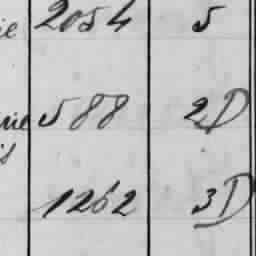 ie 2054 5
rie 588 2D
is
1262 3D